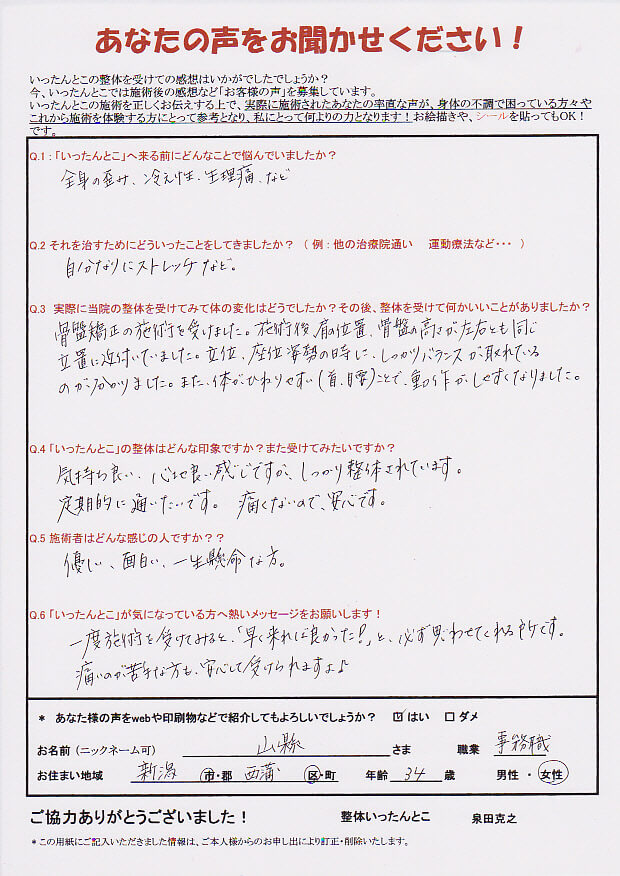 あなたの声をお聞かせください！
いったんとこの整体を受けての感想はいかがでしたでしょうか？
今、いったんとこでは施術後の感想など「お客様の声」を募集しています。
いったんとこの施術を正しくお伝えする上で、実際に施術されたあなたの率直な声が、身体の不調で困っている方々や
これから施術を体験する方にとって参考となり、私にとって何よりの力となります！お絵描きや、シールを貼ってもOK！
です。
Q.1：「いったんとこ」へ来る前にどんなことで悩んでいましたか？
全身の歪み、冷え性、生理痛、など
Q.2 それを治すためにどういったことをしてきましたか？ （ 例：他の治療院通い 運動療法など・・・ ）
自分なりにストレッチなど。
Q.3 実際に当院の整体を受けてみて体の変化はどうでしたか？その後、整体を受けて何かいいことがありましたか？
骨盤矯正の施術を受けました。施術後、肩の位置、骨盤の高さが左右とも同じ
位置に近付いていました。立位、座位姿勢の時に、しっかりバランスが取れている
のが分かりました。また、体がひねりやすい(首、腰)ことで、動作がしやすくなりました。
Q.4 「いったんとこ」の整体はどんな印象ですか？また受けてみたいですか？
気持ち良い、心地良い感じですが、しっかり整体されています。
定期的に通いたいです。 痛くないので、安心です。
Q.5 施術者はどんな感じの人ですか？？
優しい、面白い、一生懸命な方。
Q.6 「いったんとこ」が気になっている方へ熱いメッセージをお願いします！
一度施術を受けてみると、「早く来れば良かった！」と、必ず思わせてくれる所です。
痛いのが苦手な方も、安心して受けられますよ♪
* あなた様の声をwebや印刷物などで紹介してもよろしいでしょうか？ ☑はい □ダメ
お名前（ニックネーム可） 山縣 さま 職業 事務職
お住まい地域 新潟 市・郡 西蒲 区・町 年齢 34 歳 男性 ・ 女性
ご協力ありがとうございました！ 整体いったんとこ 泉田克之
* この用紙にご記入いただきました情報は、ご本人様からのお申し出により訂正・削除いたします。